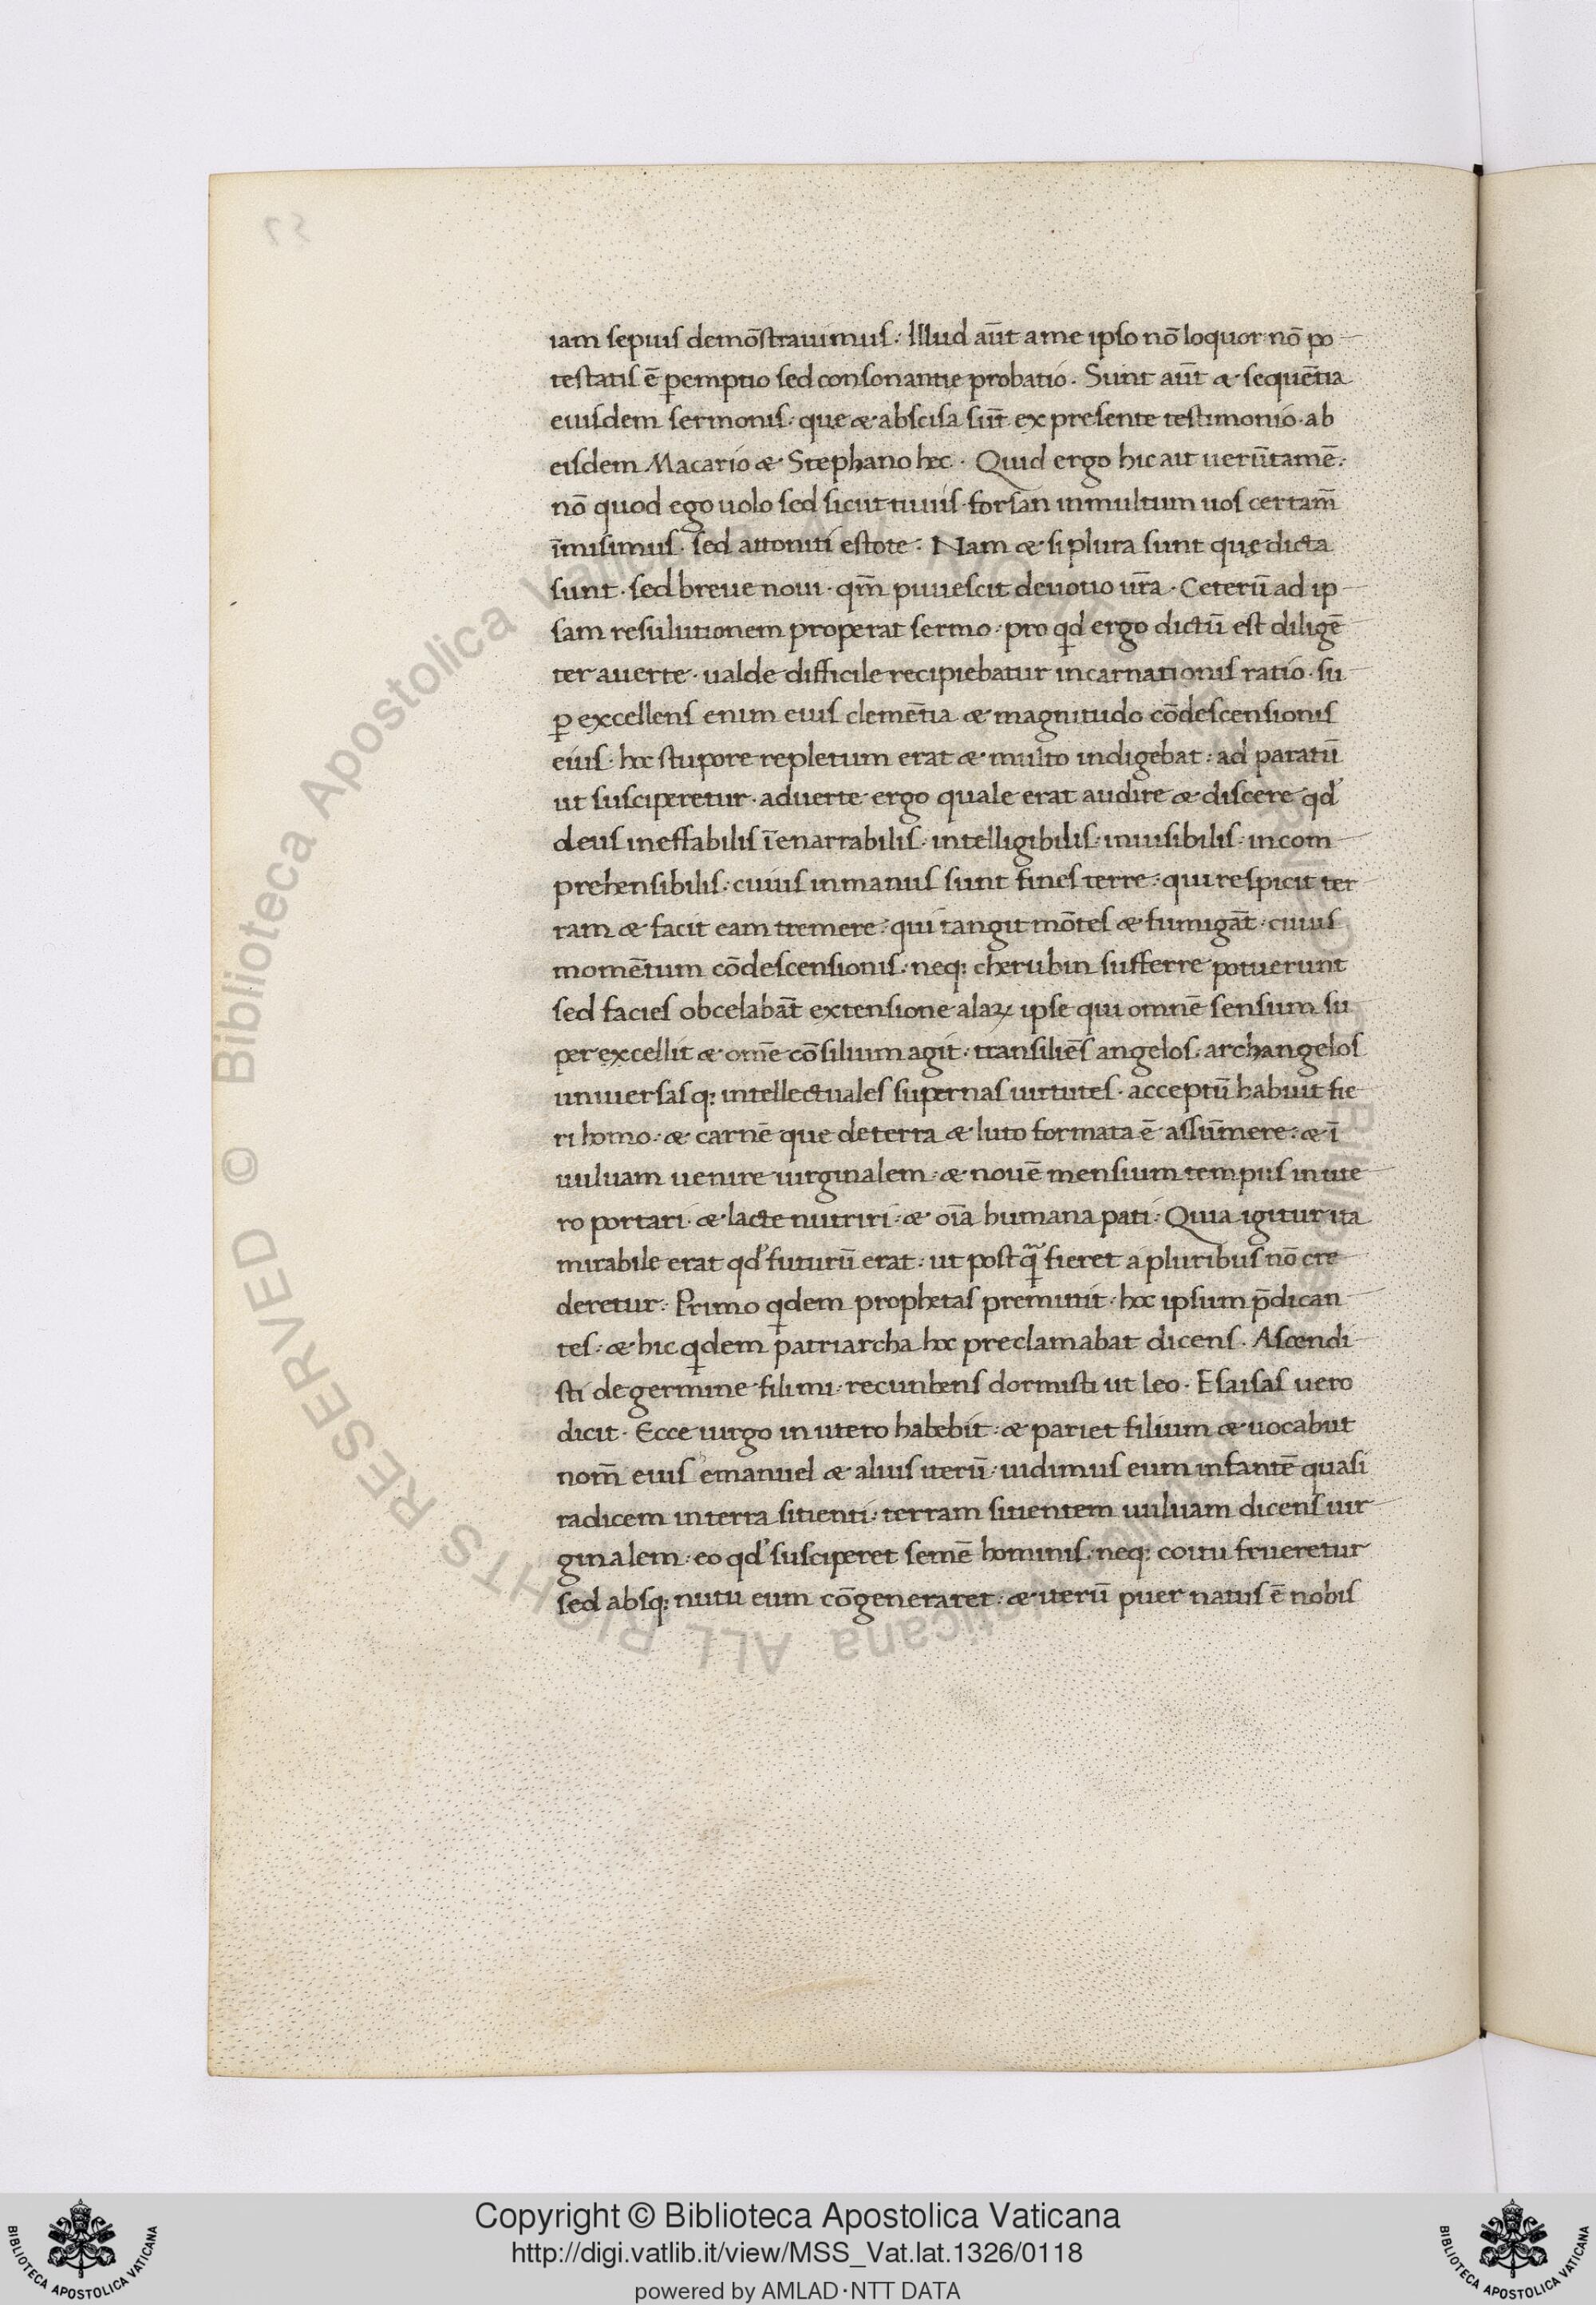 iam sepius demōstrauimus: Illud aūt a me ipso nō loquor nō po
testatis ē pemptio sed consonantie probatio. Sunt aūt & sequētia
eiusdem sermonis. que & abscisa sūt ex presente testimonio. ab
eisdem Macario & Stephano hec. Quid ergo hic ait uerūtamē.
nō quod ego uolo sed sicut tu uis. forsan in multum uos certam̄
īmisimus. sed attoniti estote. Nam & si plura sunt que dicta
sunt. sed breue noui. qm̄ piuuescit deuotio ur̄a. Ceterū ad ip
sam resulutionem properat sermo. pro qd ergo dictū est diligē
ter auerte. ualde difficile recipiebatur incarnationis ratio. su
p excellens enim eius clemētia & magnitudo cōdescensionis
eius. hoc stupore repletum erat & multo indigebat: ad paratū
ut susciperetur. aduerte ergo quale erat audire & discere qd'
deus ineffabilis īenarrabilis. intelligibilis. inuisibilis. incom
prehensibilis: cuius in manus sunt fines terre: qui respicit ter
ram & facit eam tremere: qui tangit mōtes & fumigāt. cuius
momētum cōdescensionis. neq; cherubin sufferre potuerunt
sed facies obcelabāt extensione alaꝝ ipse qui omnē sensum su
per excellit & omē cōsilium agit. transiliēs angelos. archangelos
uniuersasq; intellectuales supernas uirtutes. acceptū habuit fie
ri homo. & carnē que de terra & luto formata ē assūmere: & ī
uuluam uenire uirginalem. & nouē mensium tempus in ute
ro portari. & lacte nutriri: & oīa humana pati. Quia igitur ita
mirabile erat qd' futurū erat. ut postq̃ fieret a pluribus nō cre
deretur. Primo qdem prophetas premittit. hoc ipsum p̄dican
tes. & hic qdem patriarcha hoc preclamabat dicens. Ascendi
sti de germine fili mi. recunbens dormisti ut leo. Esaisas uero
dicit. Ecce uirgo in utero habebit. & pariet filium & uocabut
nom̄ eius emanuel & alius iterū. uidimus eum infantē quasi
radicem in terra sitienti. terram sitientem uuluam dicens uir
ginalem. eo qd' susciperet semē hominis. neq; coitu frueretur
sed absq; nutu eum cōgeneraret. & iterū puer natus ē nobis
© Biblioteca Apostolica Vaticana ALL RIGHTS RESERVED
Copyright © Biblioteca Apostolica Vaticana
http://digi.vatlib.it/view/MSS_Vat.lat.1326/0118
powered by AMLAD·NTT DATA
BIBLIOTECA APOSTOLICA VATICANA
BIBLIOTECA APOSTOLICA VATICANA